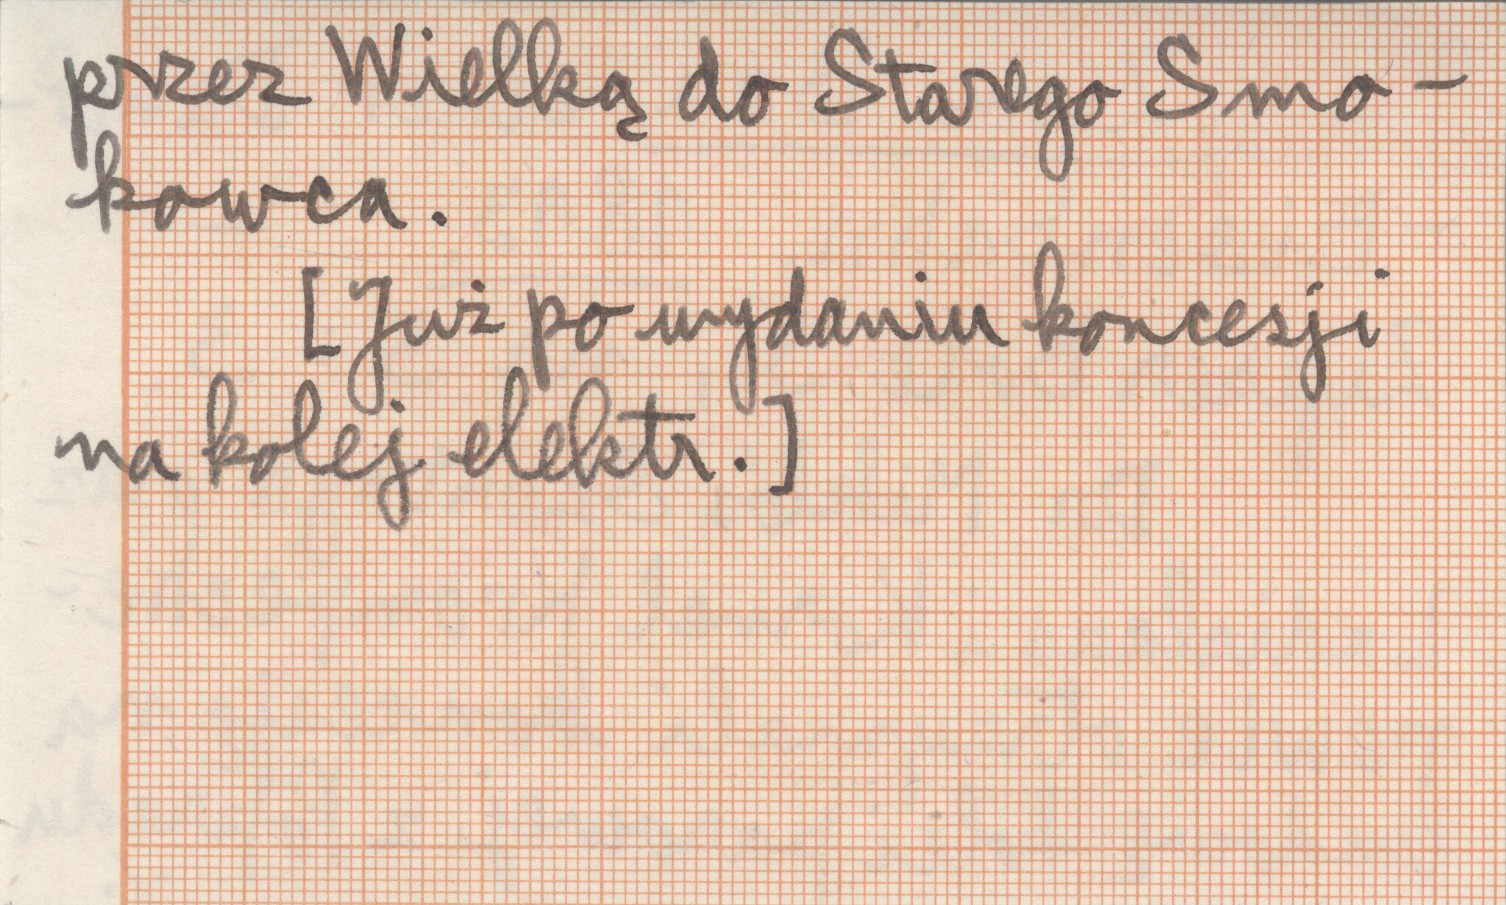 przez Wielką do Starego Smo-
kowca.
[Już po wydaniu koncesji
na kolej elektr.]